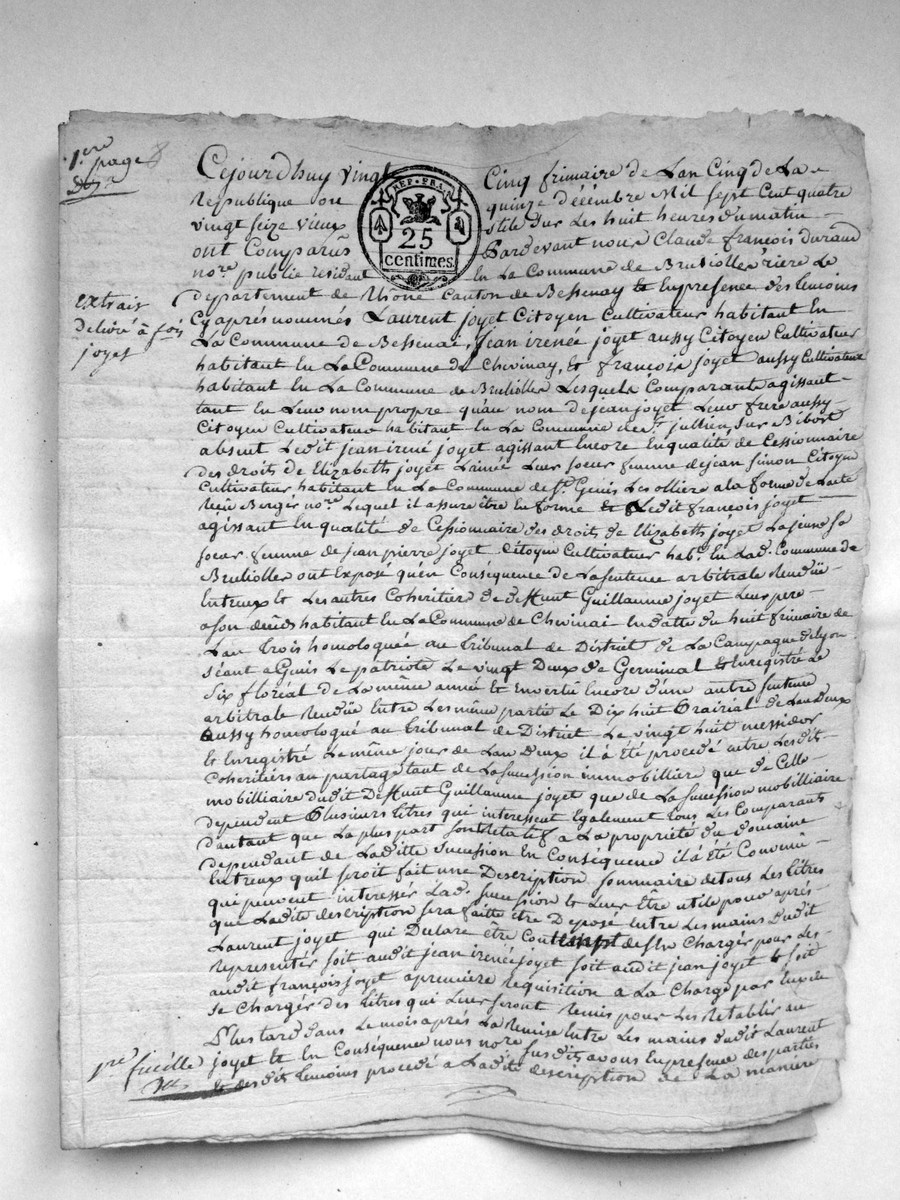 1.ere page
Cejourdhuy vingt Cinq frimaire de Lan Cinq de La
Republique ou quinze décémbre Mil Sept Cent quatre
vingt seize vieux stile sur Les huit heures du matin
ont Comparûs Pardevant nous Claude françois durand
no.re public residant En La Commune de Brusiolles riere Le
REP. FRA.
25
centimes
departement de Rhone Canton de Bessenay & En presence des temoins
extrait
delivré à fois
joyet
Cy aprés nommés Laurent joyet Citoyen Cultivateur habitant En
La Commune de Bessenai, jean irenée joyet aussy Citoyen Cultivateur
habitant En La Commune de Chevinay, & françois joyet aussy Cultivateur
habitant En La Commune de Brulioller Lesquels Comparants agissant
tant En Leur nom propre quau nom de jean joyet Leur frere aussy
Citoyen Cultivateur habitant En La Commune de S.t jullien Sur Bibost
absent Ledit jean irené joyet agissant Encore En qualité de Cessionnaire
des droits de Elizabeth joyet Lainée Leur soeur femme de jean Simon Citoyen
Cultivateur habitant En La Commune de S.t Genis Les ollieres a la forme de Lacte
Reçu Berger no.re Lequel il assure être En forme & Ledit françois joyet
agissant En qualité de Cessionnaire des droits de Elizabeth joyet La jeune sa
soeur femme de jean pierre joyet Citoyen Cultivateur hab.t En Lad. Commune de
Brulioller ont Exposé quén Conséquence de La sentence arbitrale Renduë
Entreux & Les autres Coheritiers de deffunt Guillaume joyet Leur pere
a son deceds habitant En La Commune de Chevinai En datte du huit frimaire de
Lan trois homologuée au tribunal de District de La Campagne de Lyon
séant a Genis Le patriote Le vingt Deux de Germinal & Enregistré Le
Six floréal de La même année Et En vertu Encore dune autre sentence
arbitrale Renduë Entre Les même parties Le Dix huit Prairial de Lan Deux
aussy homologué au tribunal de District Le vingt huit messidor
& Enregistré Le même jour de Lan Deux il à été procedé entre Lesdits
Coheritiers au partage tant de La succession immobilliére que de Celle
mobilliaire dudit Deffunt Guillaume joyet que de La succession mobilliaire
dependent Plusieurs titres qui interessent Egalement tous Les Comparants
dautant que La plus part sont Relatifs a La propriété du domaine
dependant de Laditte Succession En Conséquence il à été Convenu
Entreux quil seroit fait une Description sommaire de tous Les titres
qui peuvent interessér Lad. succession & Leur Être utile pour aprés
que Ladite description sera faitte être Deposé Entre Les mains dudit
Laurent joyet qui Declare être Content de sen Chargér pour Les
Representér soit audit jean irenée joyet soit audit jean joyet & soit
audit françois joyet a premiére Requisition a La Charge par Eux de
se Chargér des titres qui Leur seront Remis pour Les Retablir au
Plus tard dans Le mois aprés La Remise Entre Les mains dudit Laurent
1.re fueille
joyet & En Consequence nous no.re susdit avons En presence des parties
& desdits temoins procedé a Ladite description de La maniére